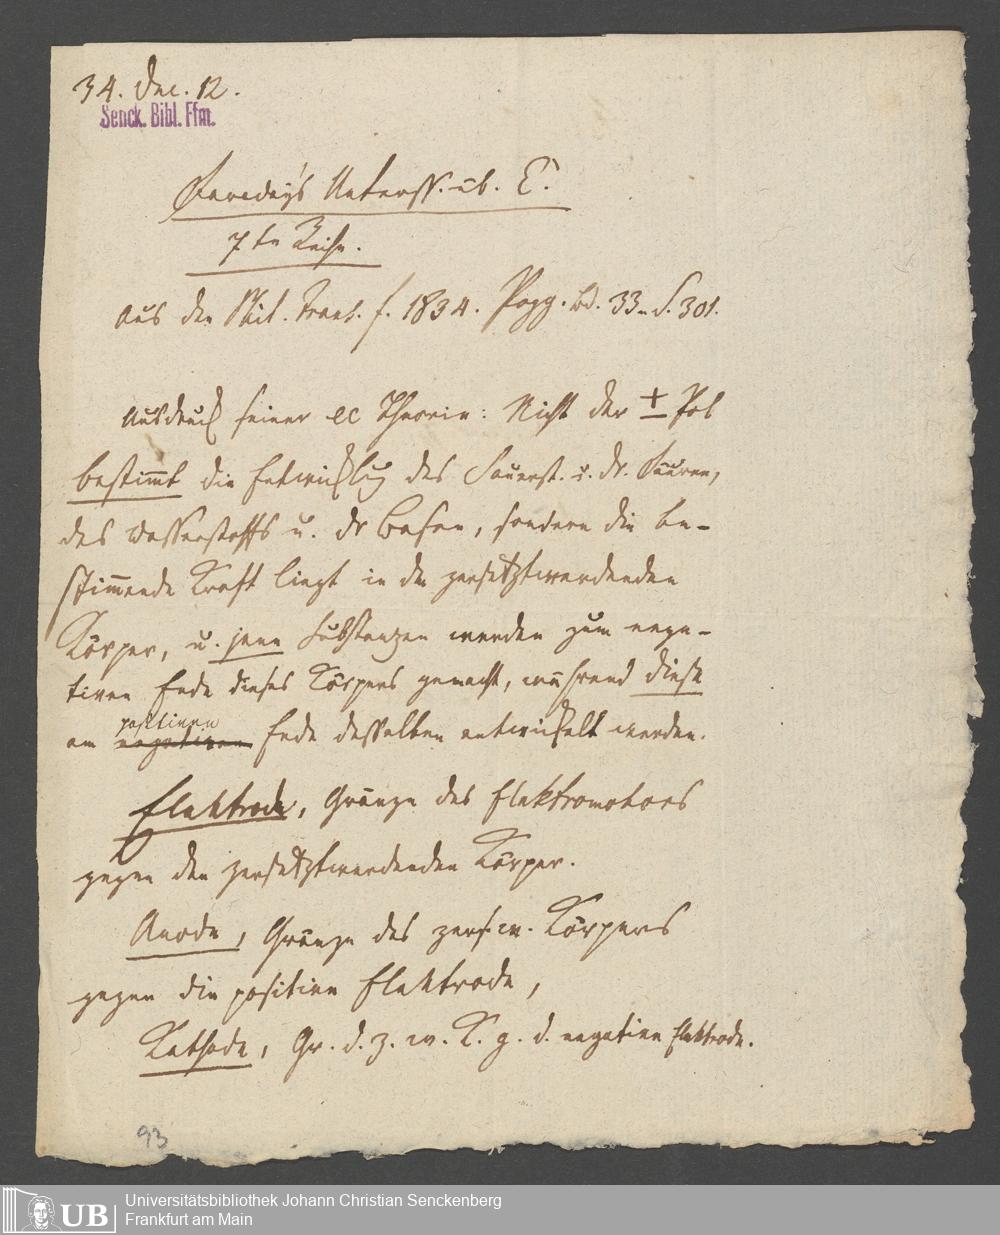 34. Dec. 12.
Senck. Bibl. Ffm.
Faraday's Unterss. üb. E.
7te Reihe.
Aus den Phil. Trans. f. 1834. Pogg. Bd. 33. S. 301.
Ausdruck seiner ec Theorie: Nicht der ± Pol
bestimmt die Entwicklug des Sauerst. u. dr. Säuren,
des Wasserstoffs u. dr Basen, sondern die be-
stimmende Kraft liegt in dem zersetztwerdenden
Körper, u. jene Substanzen werden zum nega-
tiven Ende dieses Körpers gemacht, während diese
positiven
am negativen Ende desselben entwickelt werden.
Elektrode, Gränze des Elektromotors
gegen den zersetztwerdenden Körper.
Anode, Gränze des zers. w. Körpers
gegen die positive Elektrode,
Kathode, Gr. d. z. w. K. g. d. negative Elektrode.
93
UB
Universitätsbibliothek Johann Christian Senckenberg
Frankfurt am Main